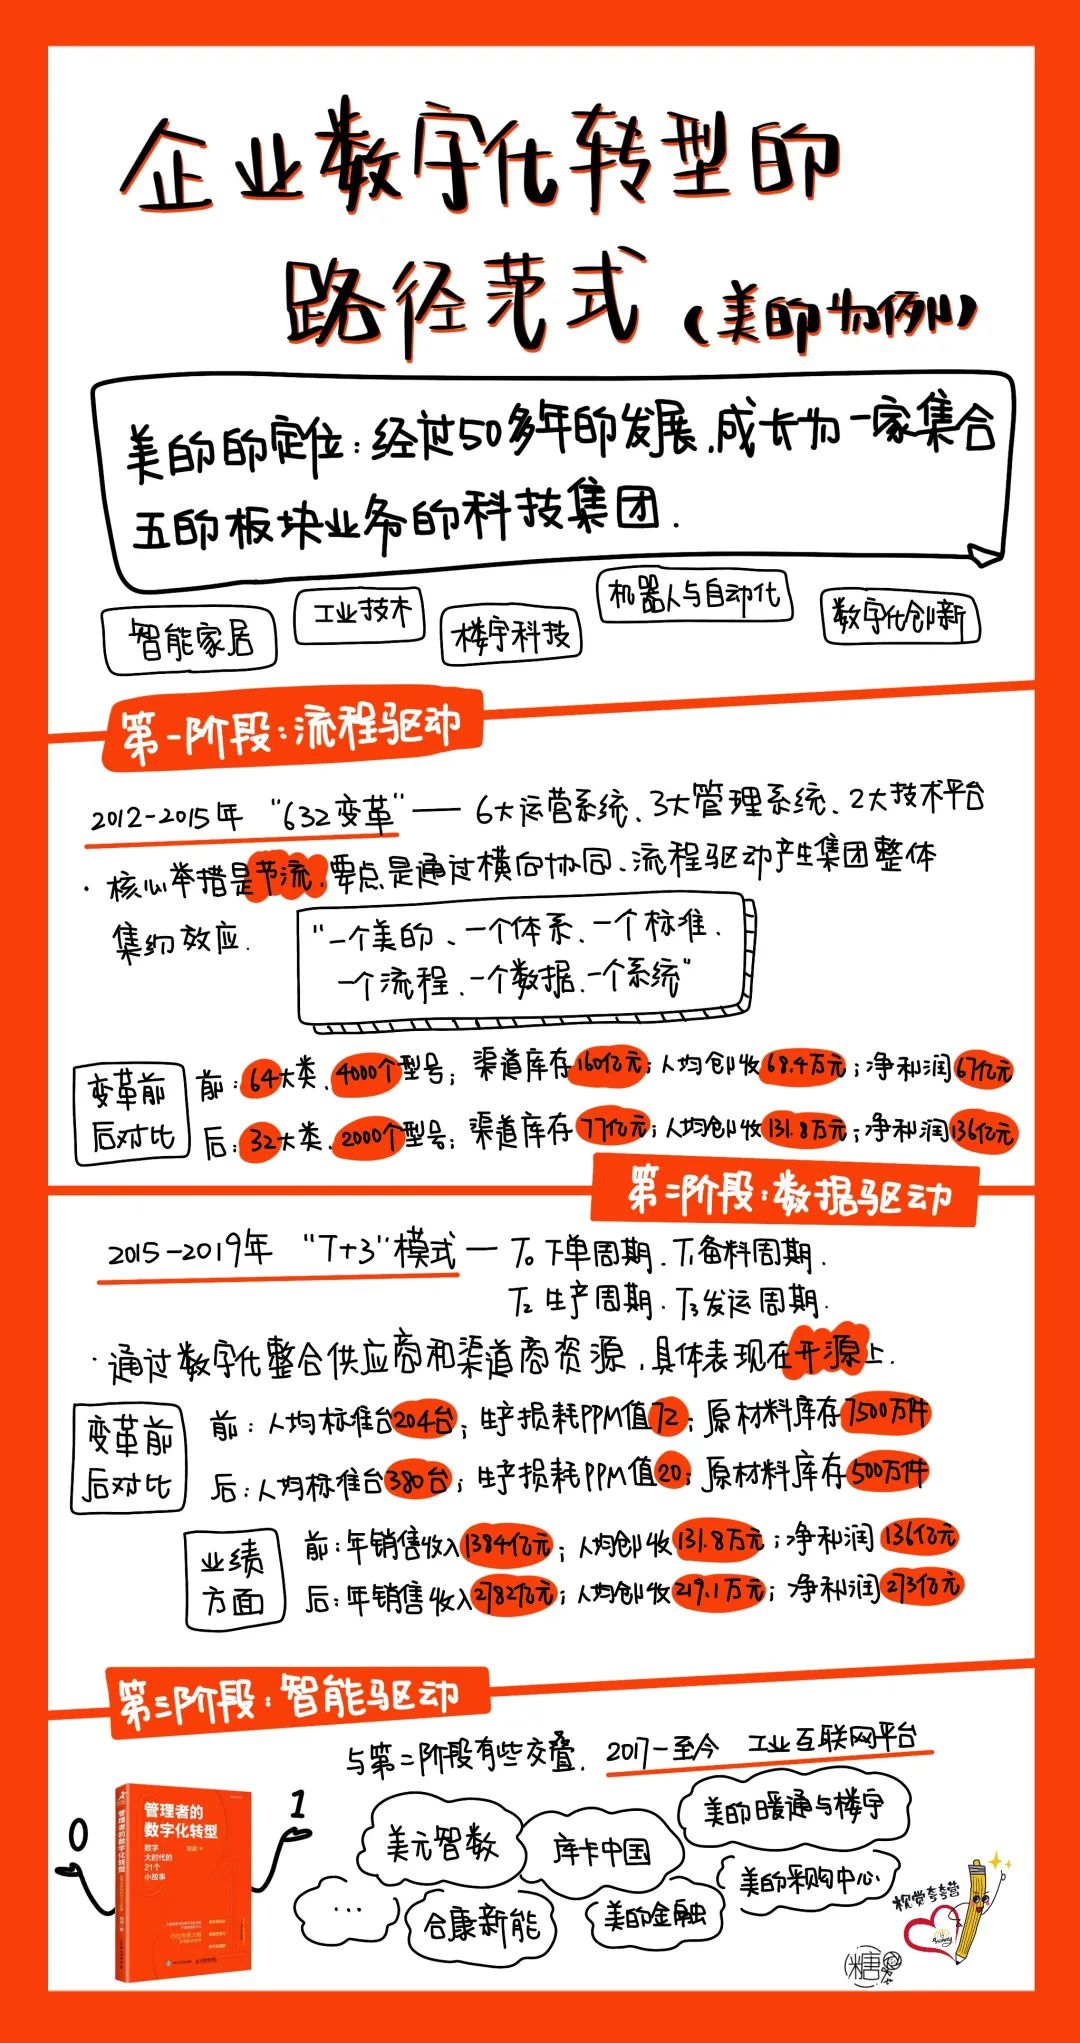 企业数字化转型的
路径范式(美的为例)
美的的定位:经过50多年的发展,成长为一家集合
五的板块业务的科技集团.
智能家居
工业技术
楼宇科技
机器人与自动化
数字化创新
第一阶段:流程驱动
2012-2015年 "632变革"——6大运营系统、3大管理系统、2大技术平台
·核心举措是节流,要点是通过横向协同、流程驱动产生集团整体
集约效应.
"一个美的、一个体系、一个标准、
一个流程、一个数据、一个系统"
变革前
后对比
前:64大类、4000个型号;渠道库存160亿元;人均创收68.4万元;净利润67亿元
后:32大类、2000个型号;渠道库存77亿元;人均创收131.8万元;净利润136亿元
第二阶段:数据驱动
2015-2019年 "T+3"模式— T0下单周期、T1备料周期、
T2生产周期、T3发运周期.
·通过数字化整合供应商和渠道商资源,具体表现在开源上.
变革前
后对比
前:人均标准台204台;生产损耗PPM值72;原材料库存7500万件
后:人均标准台380台;生产损耗PPM值20;原材料库存500万件
业绩
方面
前:年销售收入1384亿元;人均创收131.8万元;净利润136亿元
后:年销售收入2782亿元;人均创收219.1万元;净利润273亿元
第三阶段:智能驱动
与第二阶段有些交叠. 2017-至今 工业互联网平台
0
1
管理者的
数字化转型
数字
大时代的
21个
小故事
管理者的数字化转型
美元智数
库卡中国
美的暖通与楼宇
美的采购中心
...
合康新能
美的金融
视觉夸夸营
糖